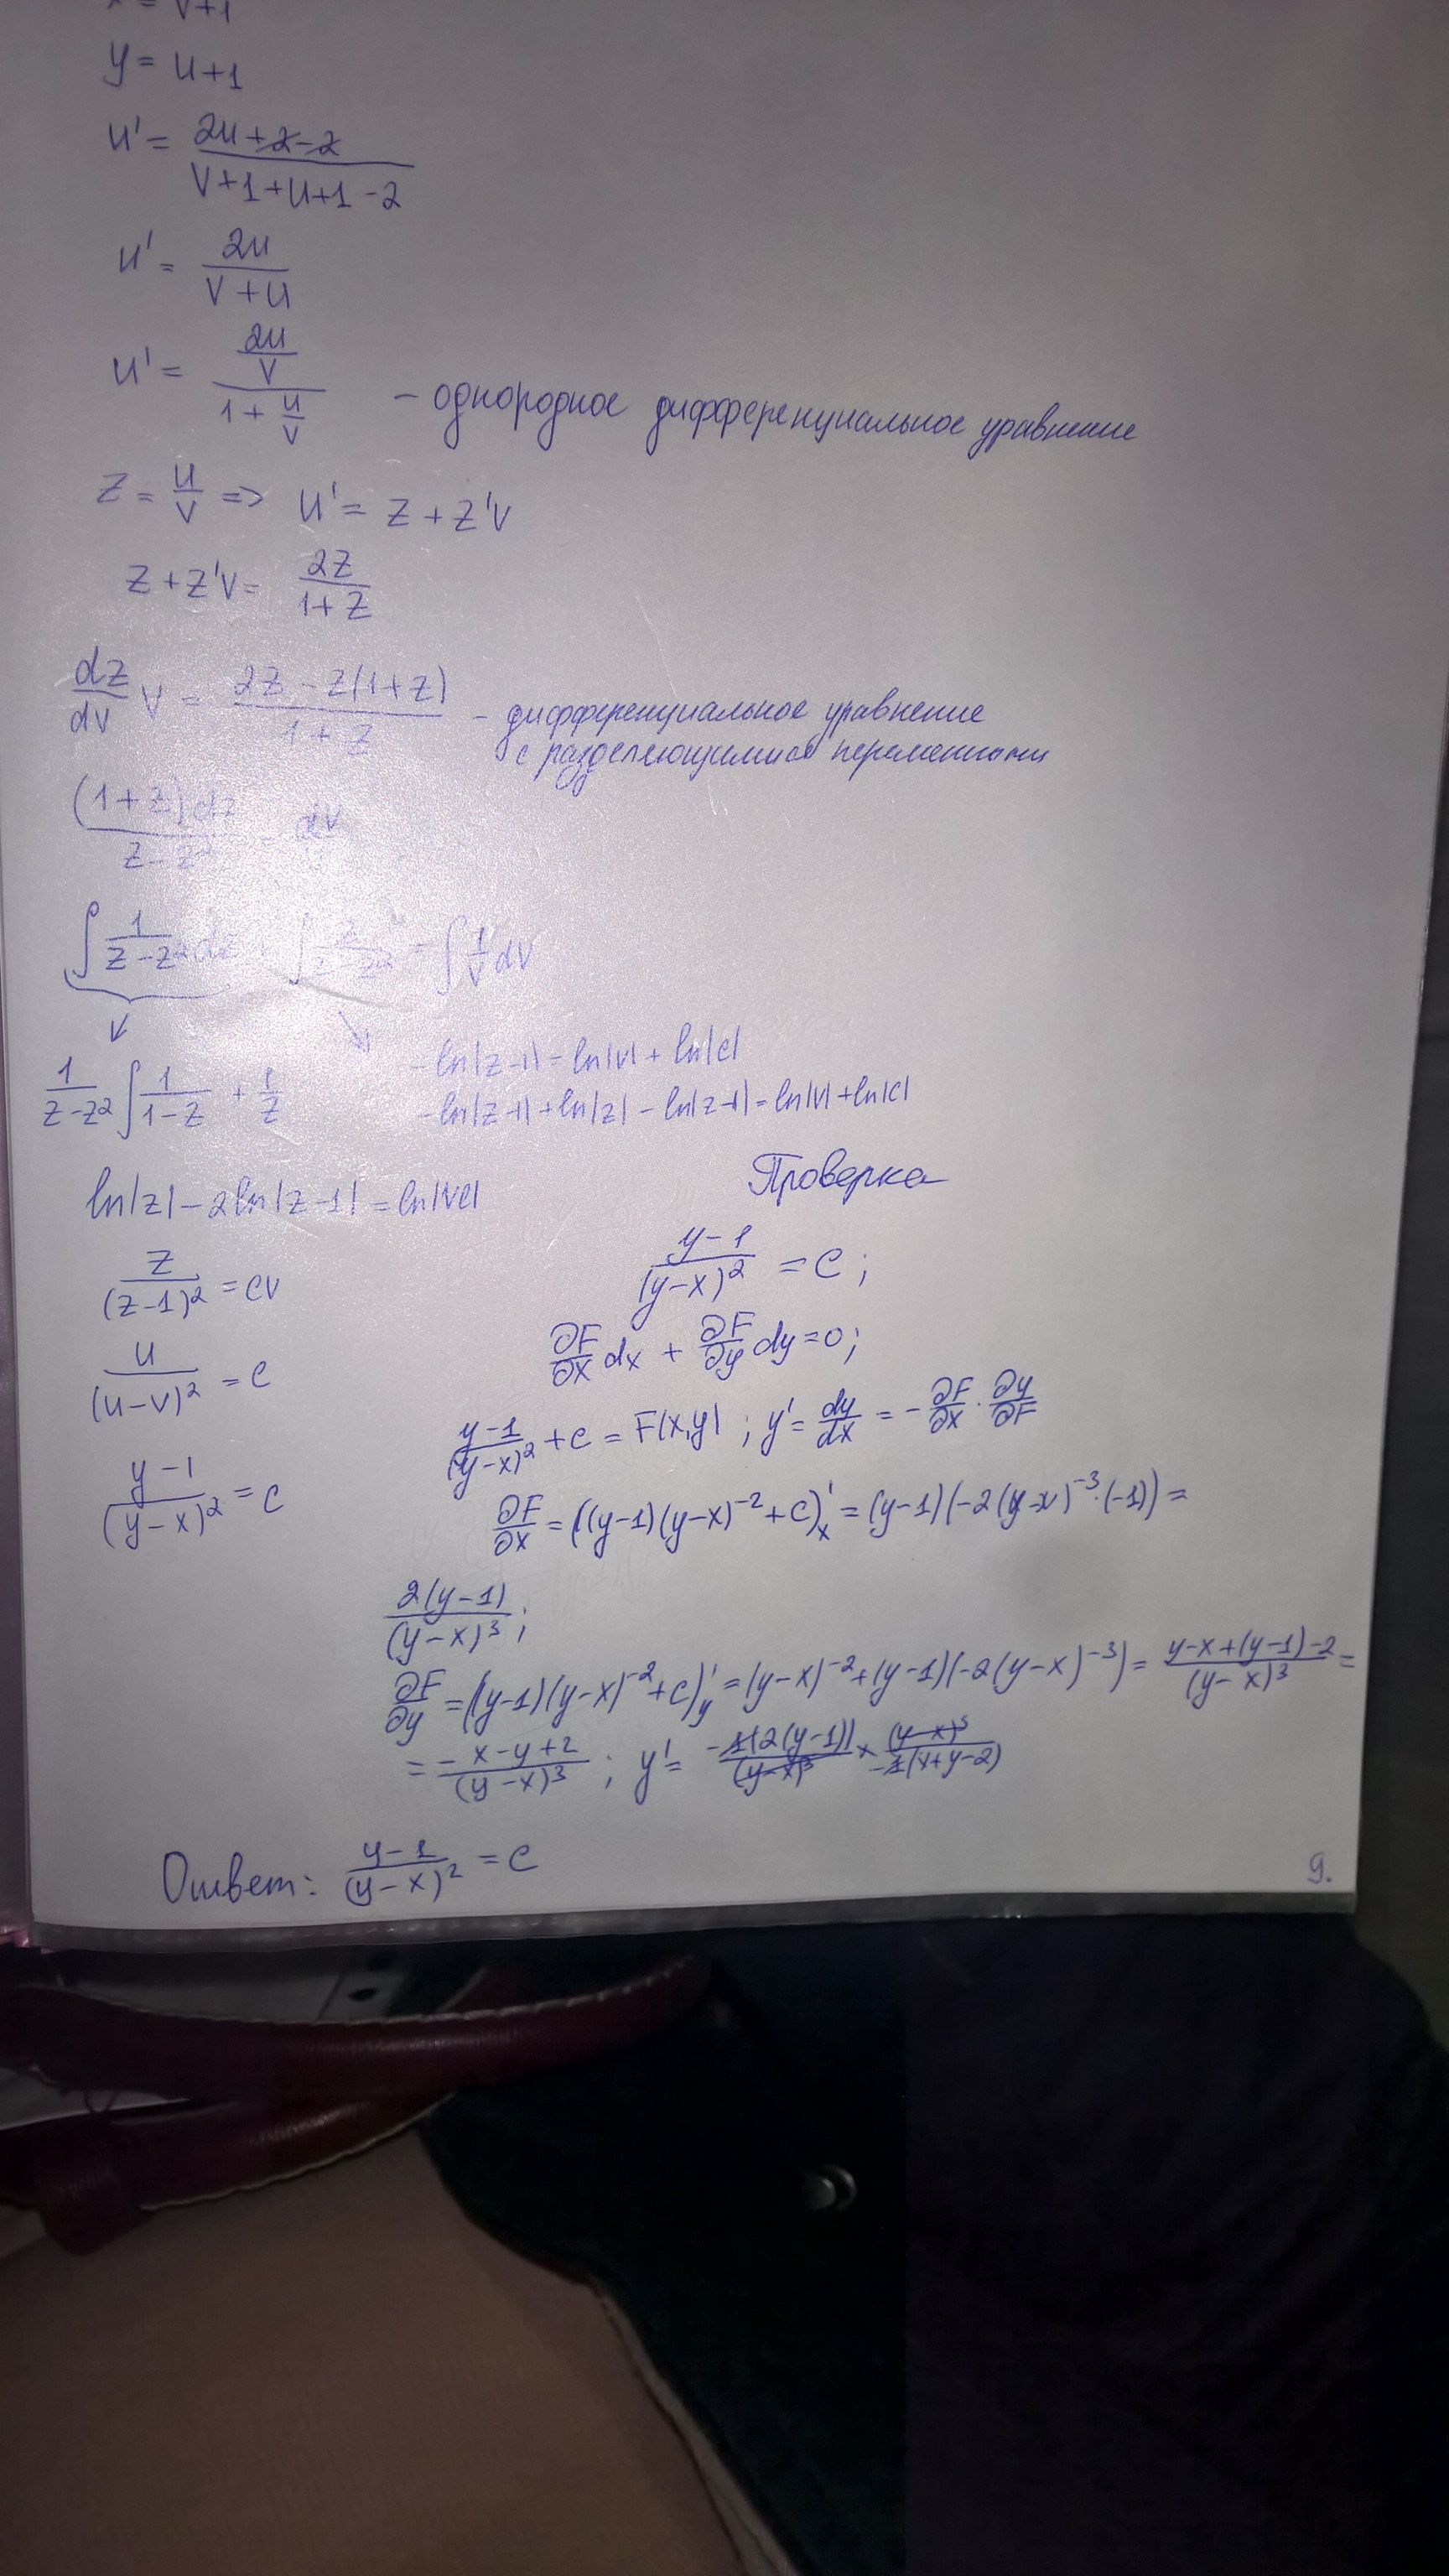 x = v+1
y = u+1
u' = (2u+2-2)/(v+1+u+1-2)
u' = 2u/(v+u)
u' = (2u/v)/(1+u/v) - однородное дифференциальное уравнение
z = u/v => u' = z + z'v
z + z'v = 2z/(1+z)
dz/dv v = (2z - z(1+z))/(1+z) - дифференциальное уравнение
с разделяющимися переменными
(1+z)dz/(z-z²) = dv/v
∫ 1/(z-z²) dz + ∫ z/(z-z²) = ∫ 1/v dv
1/(z-z²) ∫ 1/(1-z) + 1/z
-ln|z-1| = ln|v| + ln|c|
-ln|z-1| + ln|z| - ln|z-1| = ln|v| + ln|c|
ln|z| - 2ln|z-1| = ln|vc|
z/(z-1)² = cv
u/(u-v)² = c
(y-1)/(y-x)² = c
Проверка
(y-1)/(y-x)² = c;
∂F/∂x dx + ∂F/∂y dy = 0;
(y-1)/(y-x)² + c = F(x,y); y' = dy/dx = -∂F/∂x · ∂y/∂F
∂F/∂x = ((y-1)(y-x)⁻² + c)'ₓ = (y-1)(-2(y-x)⁻³·(-1)) =
2(y-1)/(y-x)³;
∂F/∂y = ((y-1)(y-x)⁻² + c)'y = (y-x)⁻² + (y-1)(-2(y-x)⁻³) = (y-x+(y-1)-2)/(y-x)³ =
= (-x-y+2)/(y-x)³; y' = -1(2(y-1))/(y-x)³ × (y-x)³/(-1(x+y-2))
Ответ: (y-1)/(y-x)² = c
9.